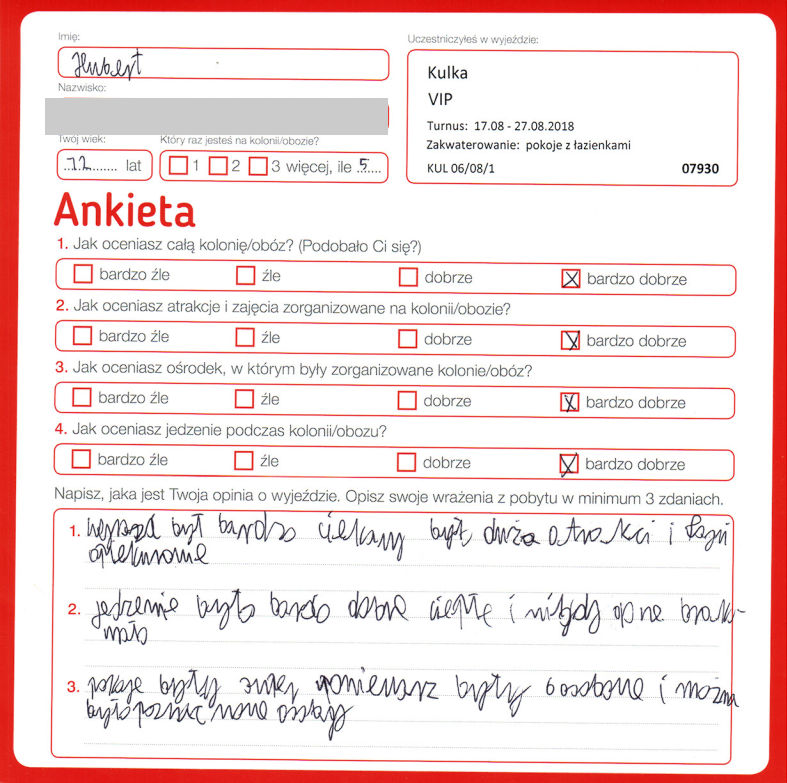 Imię:
Hubert
Uczestniczyłeś w wyjeździe:
Kulka
VIP
Turnus: 17.08 - 27.08.2018
Zakwaterowanie: pokoje z łazienkami
KUL 06/08/1 07930
Nazwisko:
Twój wiek: Który raz jesteś na kolonii/obozie?
12 lat 1 2 3 więcej, ile 5
Ankieta
1. Jak oceniasz całą kolonię/obóz? (Podobało Ci się?)
bardzo źle źle dobrze bardzo dobrze
2. Jak oceniasz atrakcje i zajęcia zorganizowane na kolonii/obozie?
bardzo źle źle dobrze bardzo dobrze
3. Jak oceniasz ośrodek, w którym były zorganizowane kolonie/obóz?
bardzo źle źle dobrze bardzo dobrze
4. Jak oceniasz jedzenie podczas kolonii/obozu?
bardzo źle źle dobrze bardzo dobrze
Napisz, jaka jest Twoja opinia o wyjeździe. Opisz swoje wrażenia z pobytu w minimum 3 zdaniach.
1. był bardzo ciekawy było dużo atrakcji i fajni
opiekunowie
2. jedzenie było bardo dobre ciepłe i nigdy
3. pokoje były były i można
było nowe osoby